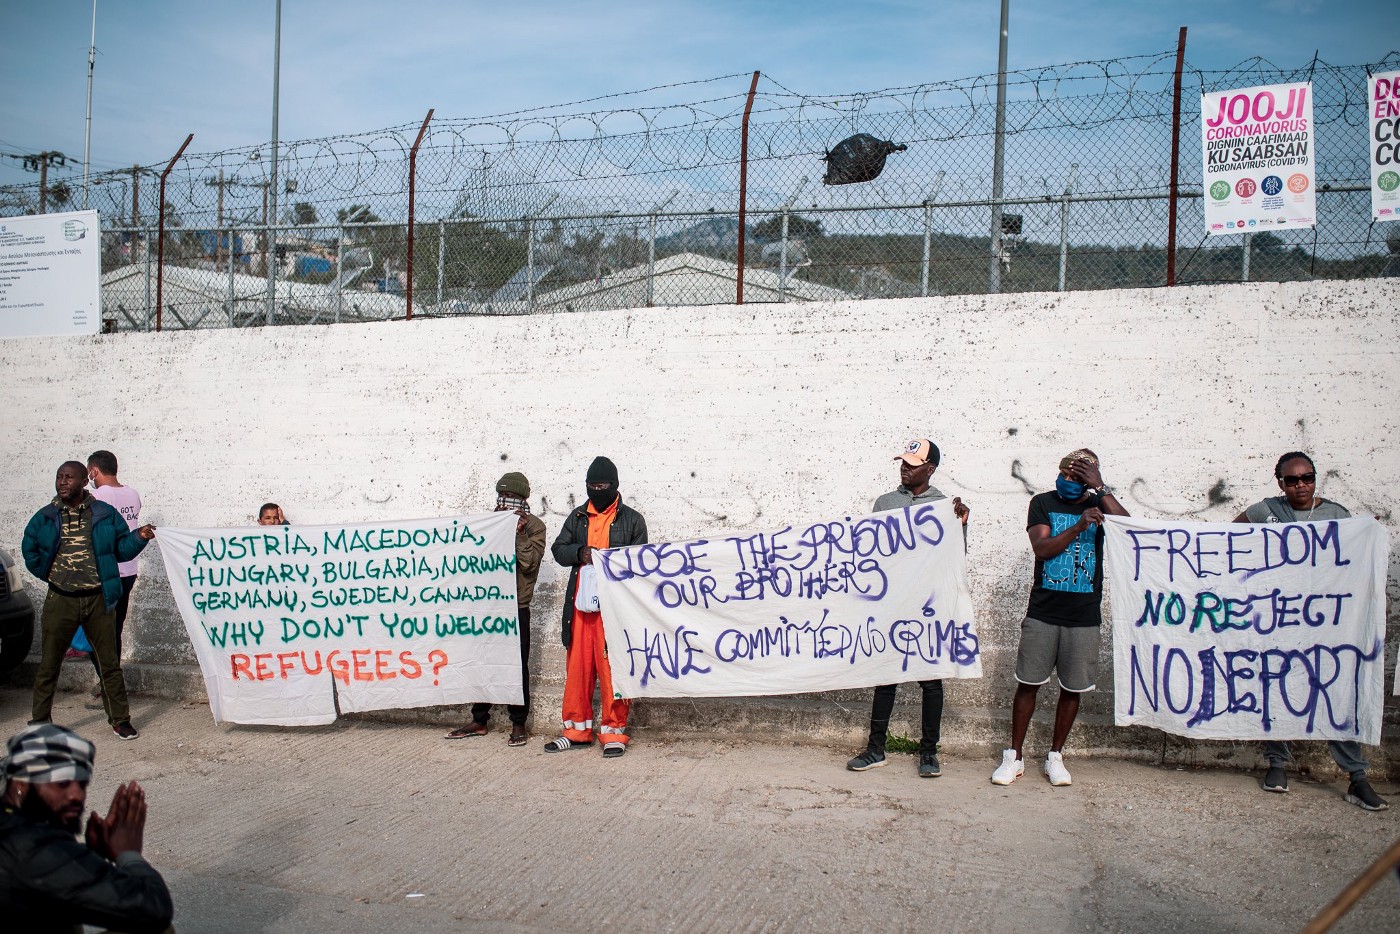 JOOJI
CORONAVORUS
DIGNIIN CAAFIMAAD
KU SAABSAN
CORONAVIRUS (COVID 19)
DE
EN
CO
CO
GOT
AUSTRIA, MACEDONIA,
HUNGARY, BULGARIA, NORWAY
GERMANY, SWEDEN, CANADA...
WHY DON'T YOU WELCOM
REFUGEES?
CLOSE THE PRISONS
OUR BROTHERS
HAVE COMMITTED NO CRIMES
FREEDOM
NO REJECT
NO DEPORT